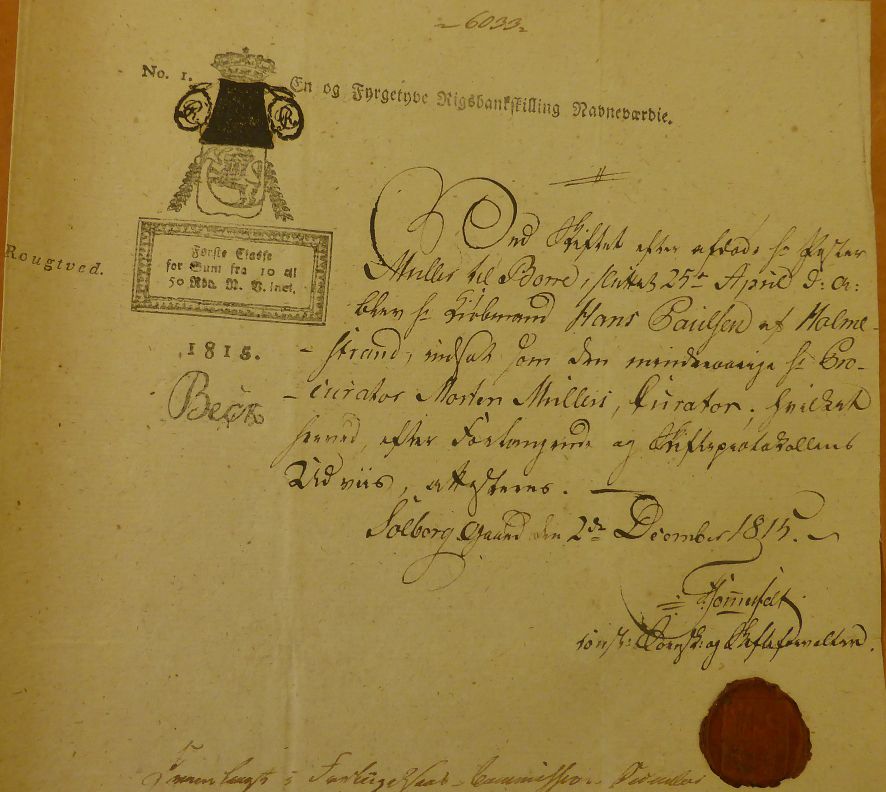 6033
No. 1.
En og Fyrgetyve Rigsbankskilling Navneværdie.
Rougtved.
Første Classe
for Sum fra 10 til
50 Rbd. N. V. incl.
1815.
Beck
Ved Skiftet efter afdøde hr Pastor
Müller til Borre, sluttet 25de April d: a:
blev hr Kiøbmand Hans Paulsen af Holme-
strand, indsat som den mindreaarige hr Pro-
curator Morten Müllers, Curator, hvilket
herved, efter Forlangende og Skifteprotokollens
Udviis, attesteres.
Solberg Gaard den 2de December 1815.
const: Sorensk: og Skifteforvalter.
Fremlagt i Forligelses-Commission